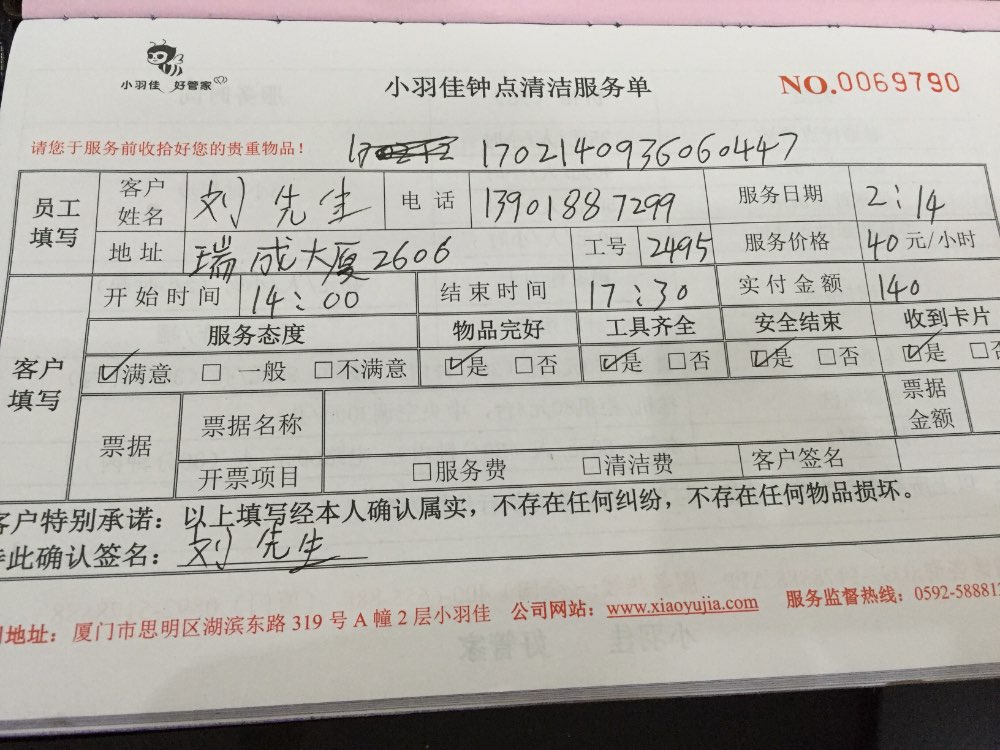 小羽佳 好管家
小羽佳钟点清洁服务单
NO.0069790
请您于服务前收拾好您的贵重物品！
1702140936060447
员工填写 客户姓名 刘先生 电话 13901887299 服务日期 2:14
地址 瑞成大厦2606 工号 2495 服务价格 40元/小时
客户填写 开始时间 14:00 结束时间 17:30 实付金额 140
服务态度 物品完好 工具齐全 安全结束 收到卡片
☑满意 □一般 □不满意 ☑是 □否 ☑是 □否 ☑是 □否 ☑是 □否
票据 票据名称 票据金额
开票项目 □服务费 □清洁费 客户签名
客户特别承诺：以上填写经本人确认属实，不存在任何纠纷，不存在任何物品损坏。
此确认签名：刘先生
地址：厦门市思明区湖滨东路319号A幢2层小羽佳 公司网站：www.xiaoyujia.com 服务监督热线：0592-588812